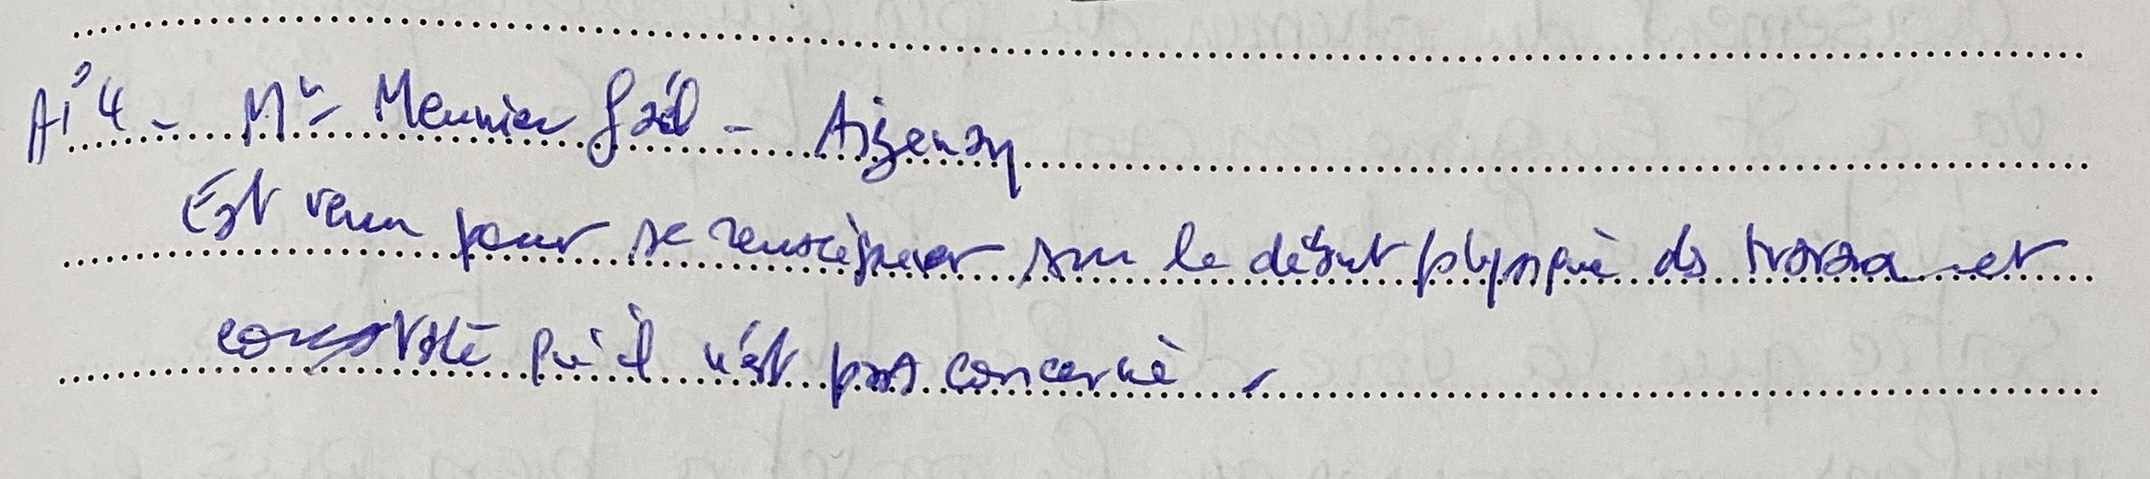 Ai'4 - Mr Meunier Gaël - Aizenay
Est venu pour se renseigner sur le début physique des travaux et
constaté qu'il n'est pas concerné.